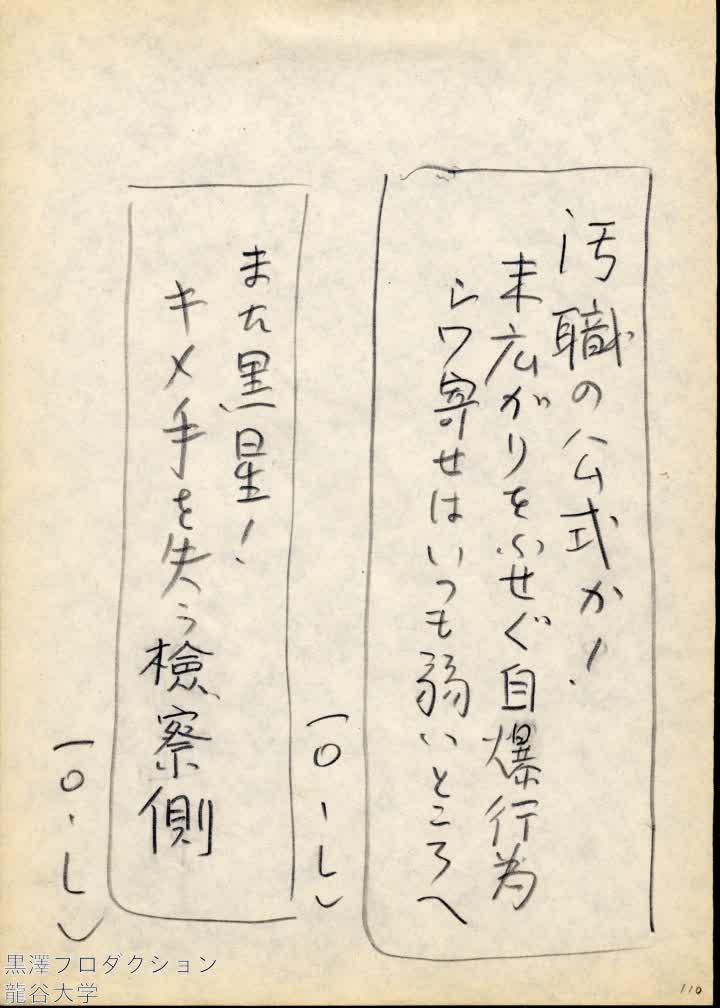 汚職の公式か!
末広がりをふせぐ自爆行為
シワ寄せはいつも弱いところへ
(O・L)
また黒星!
キメ手を失う検察側
(O・L)
黒澤プロダクション
龍谷大学
110